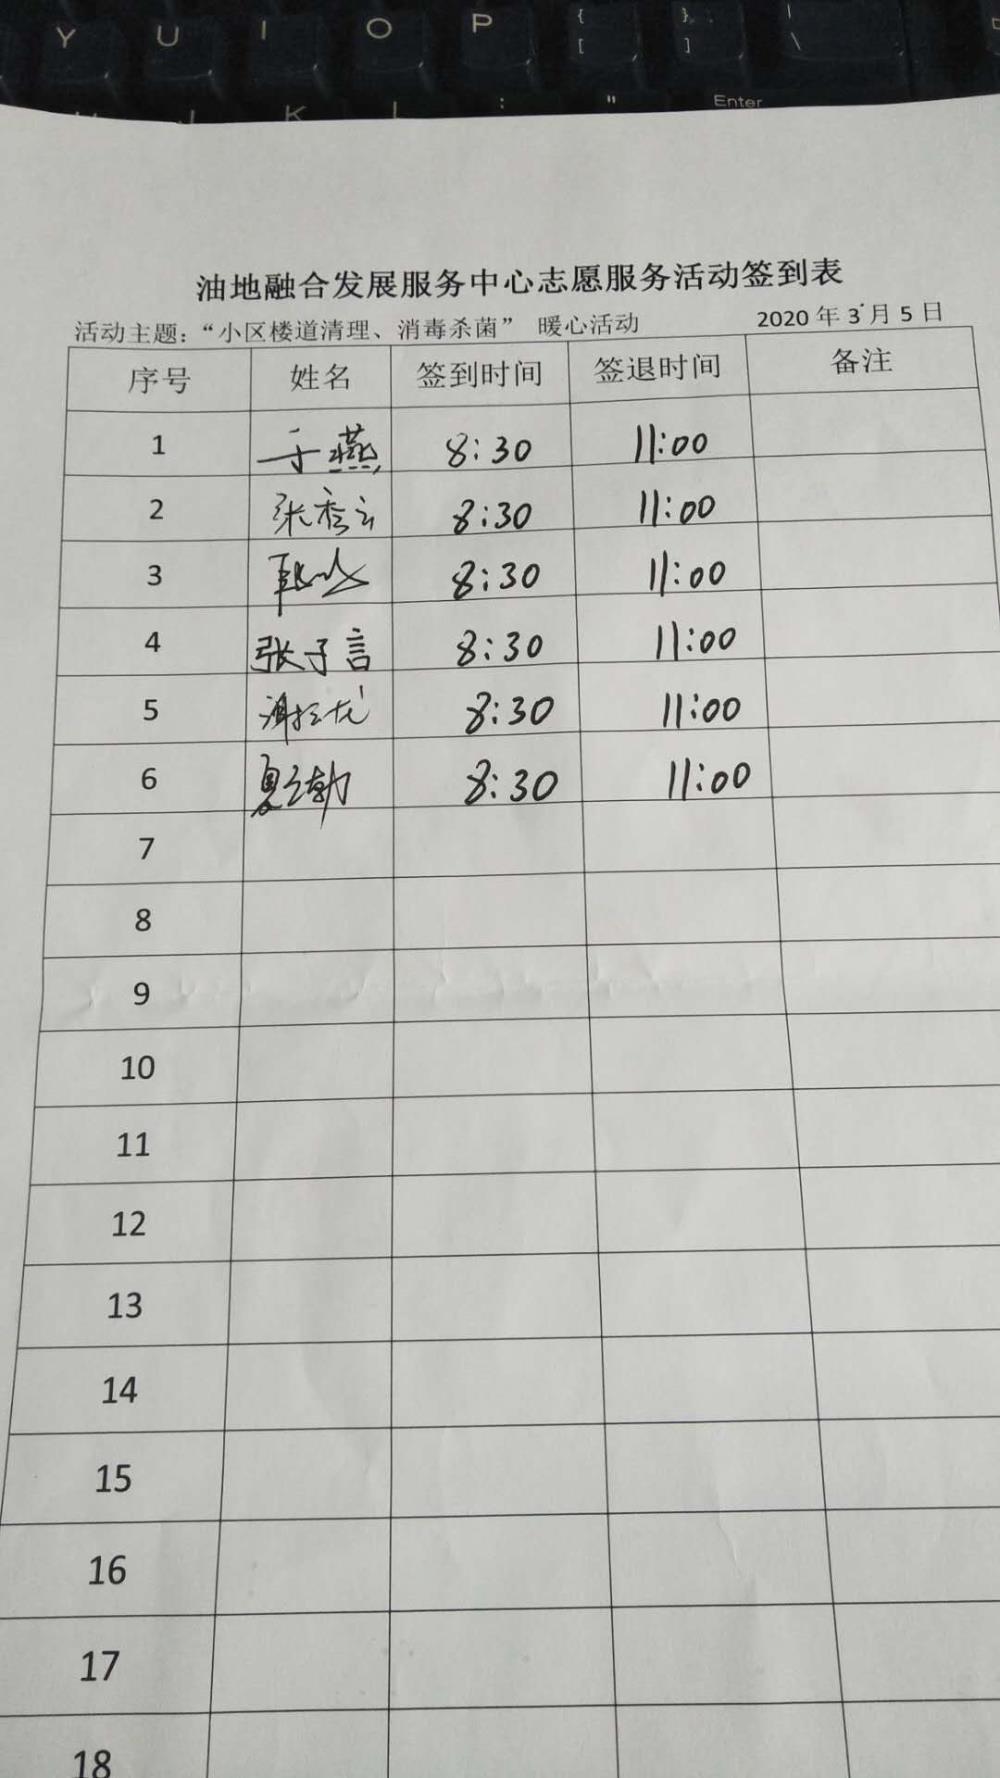 Y U I O P { [ } ] | \
J K L : " Enter
油地融合发展服务中心志愿服务活动签到表
活动主题：“小区楼道清理、消毒杀菌” 暖心活动 2020 年 3 月 5 日
序号 姓名 签到时间 签退时间 备注
1 于燕 8:30 11:00
2 张秀云 8:30 11:00
3 8:30 11:00
4 张子言 8:30 11:00
5 8:30 11:00
6 8:30 11:00
7
8
9
10
11
12
13
14
15
16
17
18